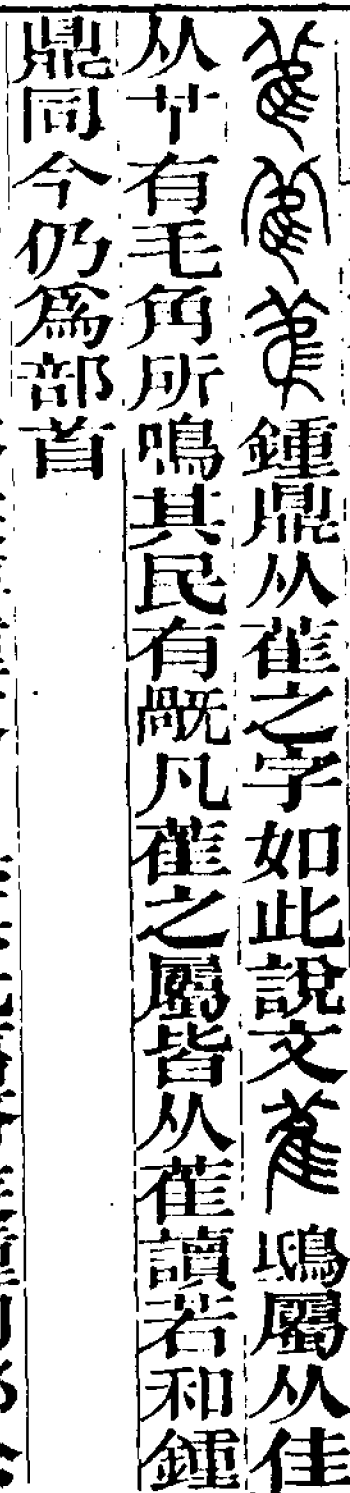 鍾鼎从雈之字如此說文雈鴟屬从隹
从𦫳有毛角所鳴其民有𣄴凡雈之屬皆从雈讀若和鍾
鼎同今仍爲部首